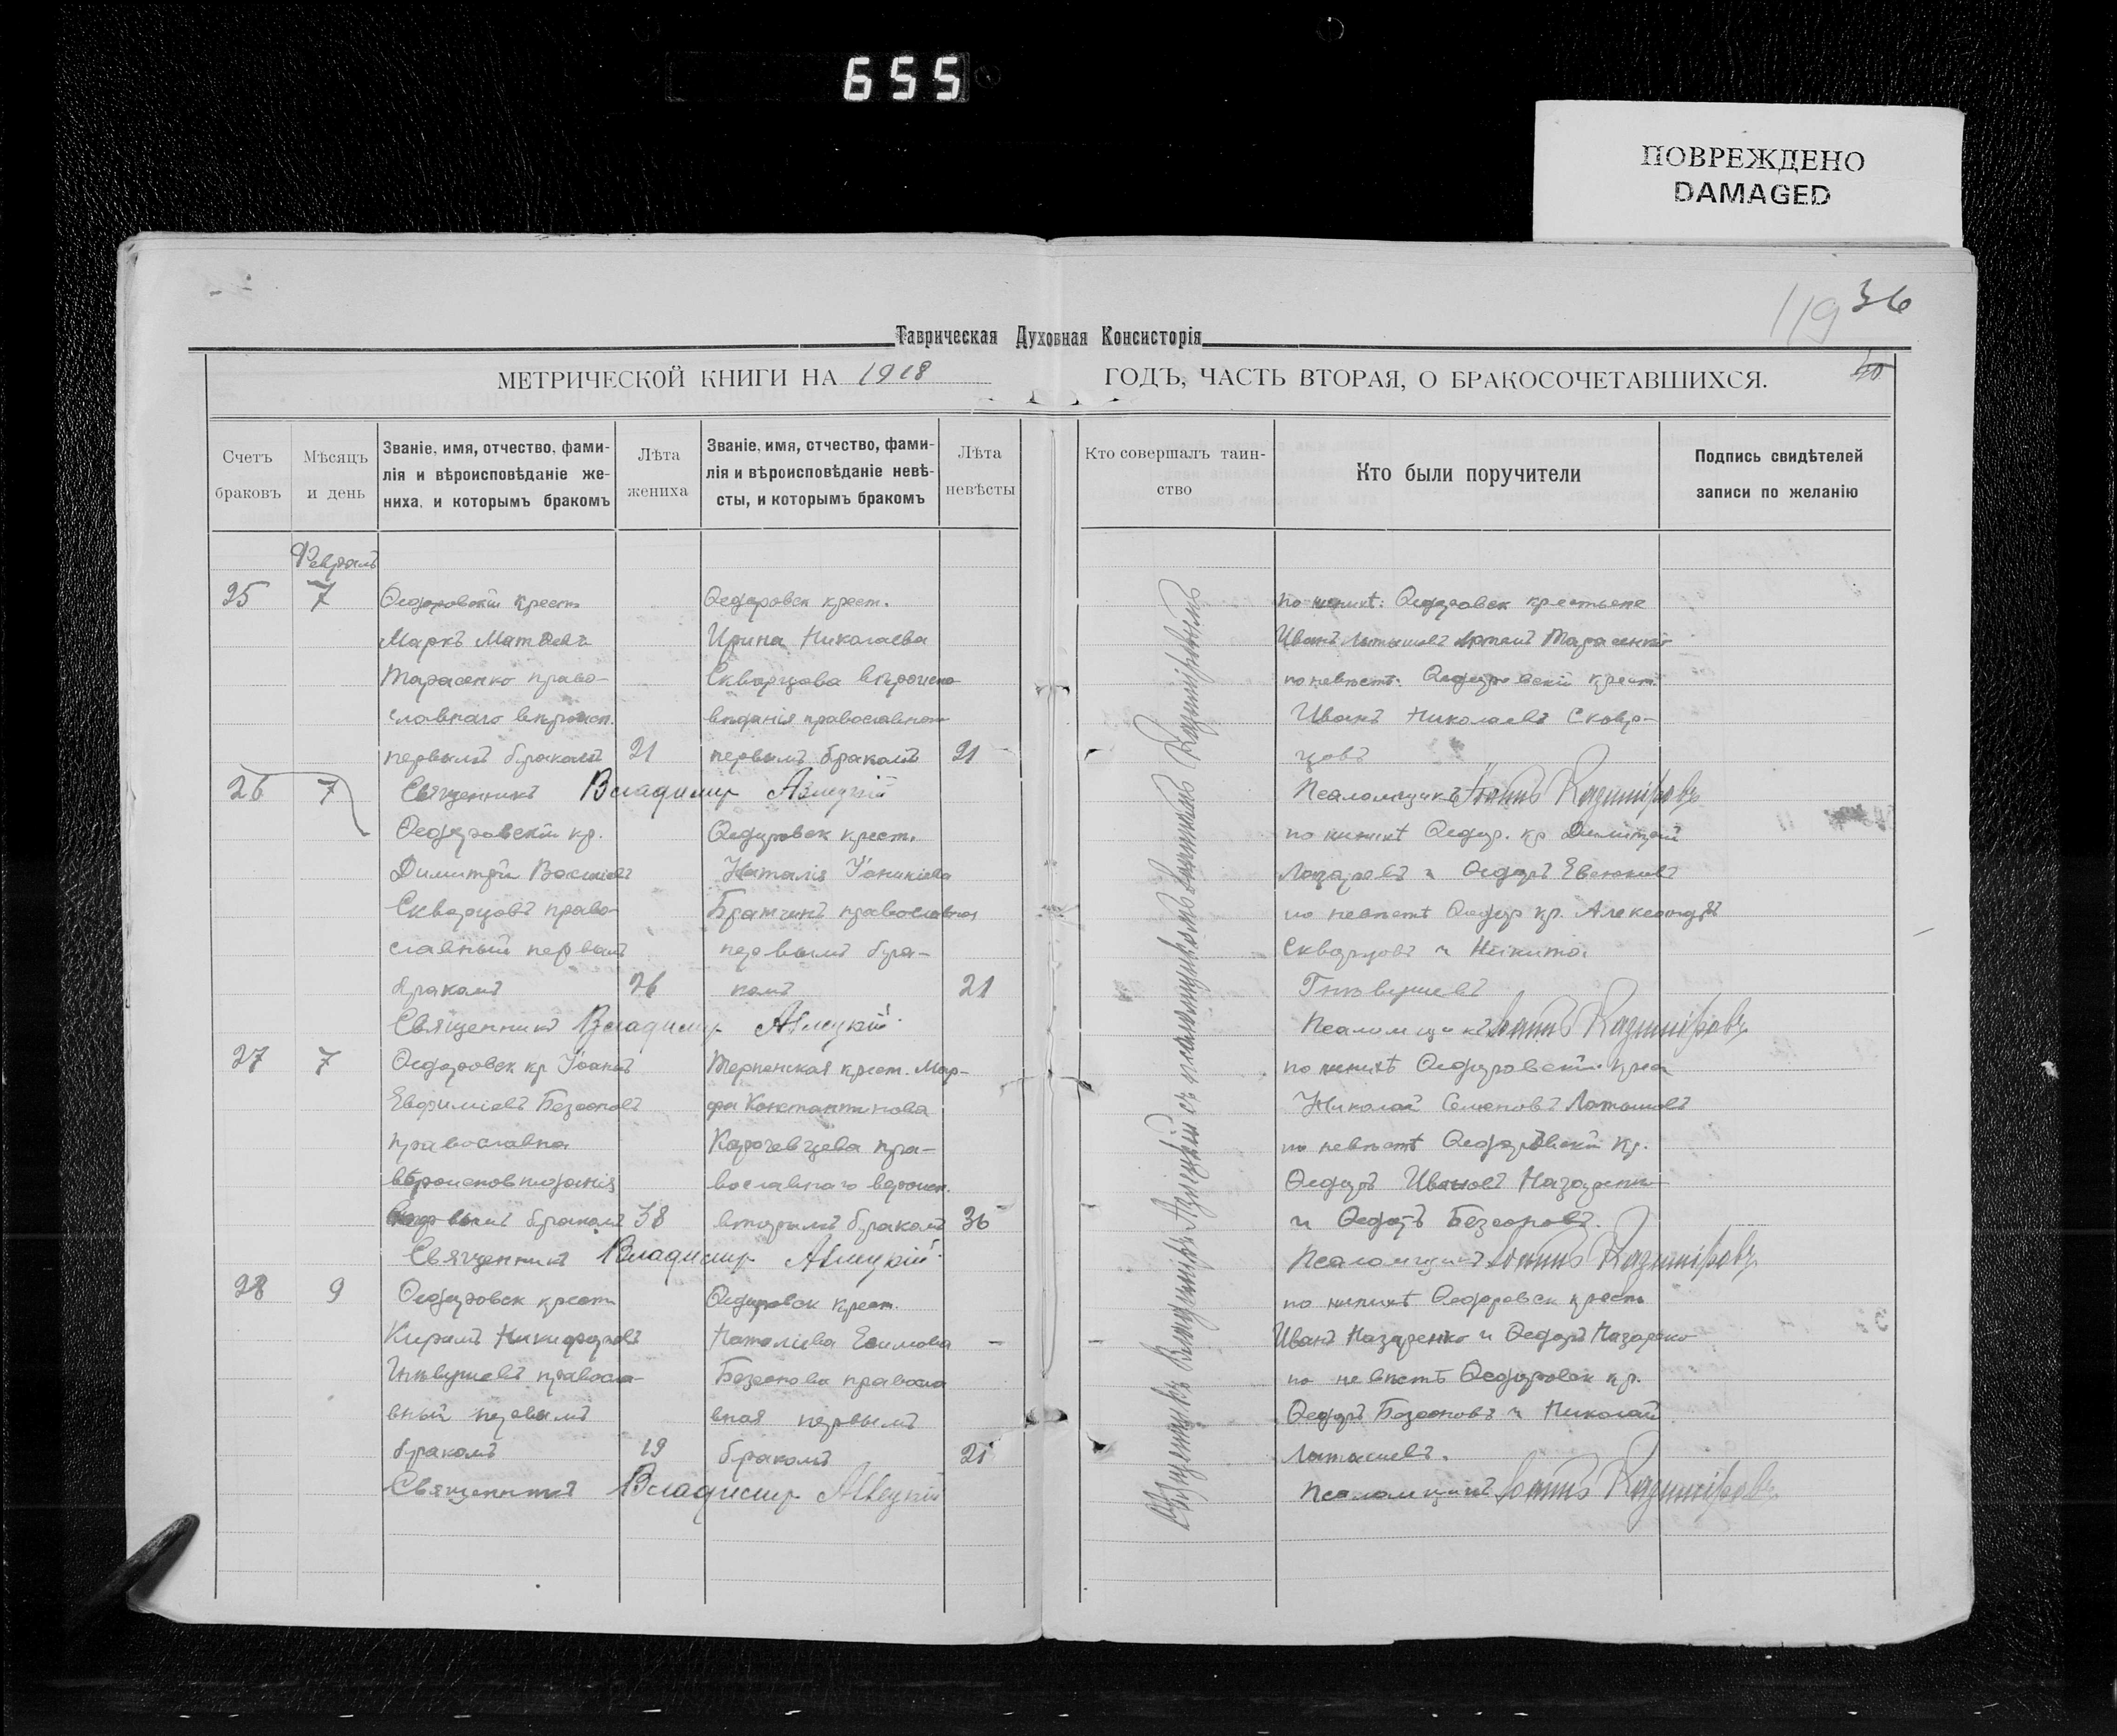 655
ПОВРЕЖДЕНО
DAMAGED
119 36
Таврическая Духовная Консисторія
МЕТРИЧЕСКОЙ КНИГИ НА 1918 ГОДЪ, ЧАСТЬ ВТОРАЯ, О БРАКОСОЧЕТАВШИХСЯ.
Счетъ браковъ
Мѣсяцъ и день
Званіе, имя, отчество, фами-
лія и вѣроисповѣданіе же-
ниха, и которымъ бракомъ
Лѣта жениха
Званіе, имя, отчество, фами-
лія и вѣроисповѣданіе невѣ-
сты, и которымъ бракомъ
Лѣта невѣсты
Кто совершалъ таин-
ство
Кто были поручители
Подпись свидѣтелей
записи по желанію
Февраль
25 7
Ѳедоровскій крест
Маркъ Матѳеевъ
Тарасенко право-
славнаго вѣроисп.
первымъ бракомъ 21
Ѳедоровск крест.
Ирина Николаева
Скворцова вѣроиспо
вѣданія православнаго
первымъ бракомъ 21
по женихѣ: Ѳедоровск крестьяне
Иванъ Артемъ Тарасенко
по невѣстѣ: Ѳедоровскій крест.
Иванъ Николаевъ Сквор-
цовъ
Священникъ Владимир
Псаломщикъ Іоаннъ Казиміровъ
26 7
Ѳедоровскій кр.
Димитрій Васильевъ
Скворцовъ право-
славный первымъ
бракомъ 26
Ѳедоровск крест.
Наталія Іоникіева
православная
первымъ бра-
комъ 21
по женихѣ Ѳедор. кр Димитрій
Лазаревъ и Ѳедоръ
по невѣстѣ Ѳедор кр. Александръ
Скворцовъ и Никита
Священникъ Владимир
Псаломщикъ Іоаннъ Казиміровъ
27 7
Ѳедоровск кр Іоаннъ
Евфиміевъ Безсоновъ
православна
вѣроисповѣданія
бракомъ 38
Терпенская крест. Мар-
фа Константинова
пра-
вославнаго вѣроисп.
вторымъ бракомъ 36
по женихѣ Ѳедоровскій крес
Николай Семеновъ
по невѣстѣ Ѳедоровскій кр.
Ѳедоръ Ивановъ Назаренко
и Ѳедоръ Безсоновъ.
Священникъ Владимир
Псаломщикъ Іоаннъ Казиміровъ
28 9
Ѳедоровск крест
Никифоровъ
правосла-
вный первымъ
бракомъ 19
Ѳедоровск крест.
Безсонова правосла
вная первымъ
бракомъ 21
по женихѣ Ѳедоровск крест
Иванъ Назаренко и Ѳедоръ Назаренко
по невѣстѣ Ѳедоровск кр.
Ѳедоръ Безсоновъ и Николай
Священникъ Владимир
Псаломщикъ Іоаннъ Казиміровъ